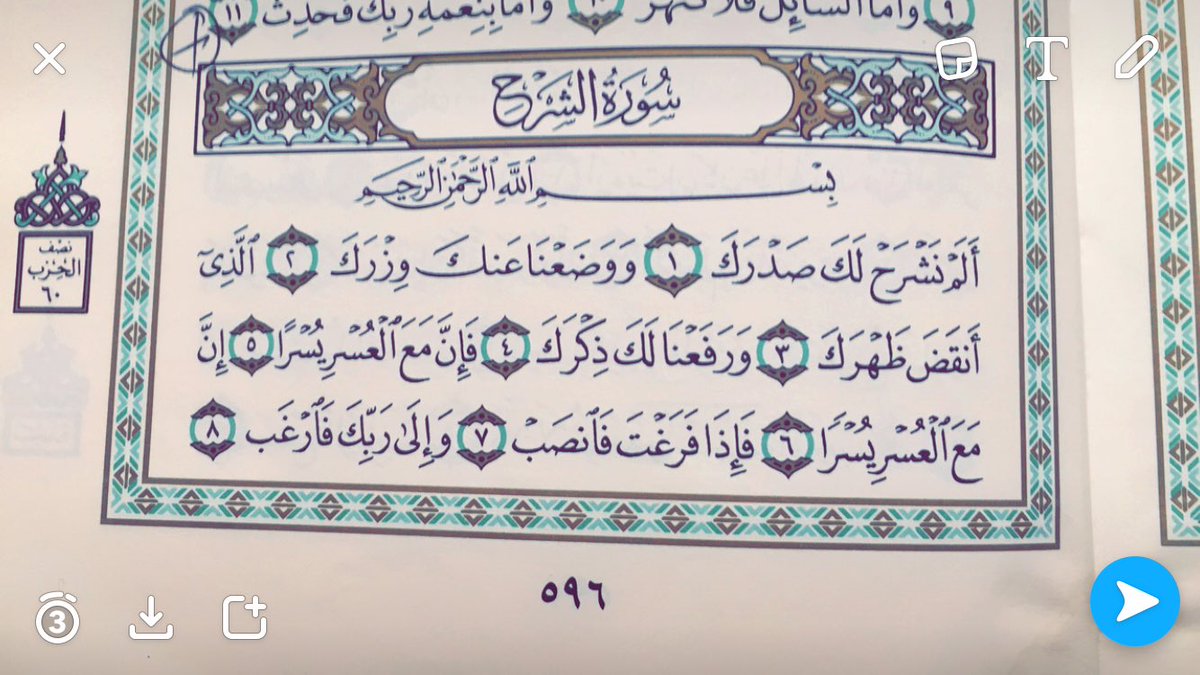 ٩ وَأَمَّا السَّائِلَ فَلَا تَنْهَرْ ١٠ وَأَمَّا بِنِعْمَةِ رَبِّكَ فَحَدِّثْ ١١
سُورَةُ الشَّرْحِ
بِسْمِ ٱللَّهِ ٱلرَّحْمَٰنِ ٱلرَّحِيمِ
أَلَمْ نَشْرَحْ لَكَ صَدْرَكَ ١ وَوَضَعْنَا عَنكَ وِزْرَكَ ٢ ٱلَّذِىٓ
أَنقَضَ ظَهْرَكَ ٣ وَرَفَعْنَا لَكَ ذِكْرَكَ ٤ فَإِنَّ مَعَ ٱلْعُسْرِ يُسْرًا ٥ إِنَّ
مَعَ ٱلْعُسْرِ يُسْرًا ٦ فَإِذَا فَرَغْتَ فَٱنصَبْ ٧ وَإِلَىٰ رَبِّكَ فَٱرْغَب ٨
نصف
الحزب
٦٠
٥٩٦
T
3